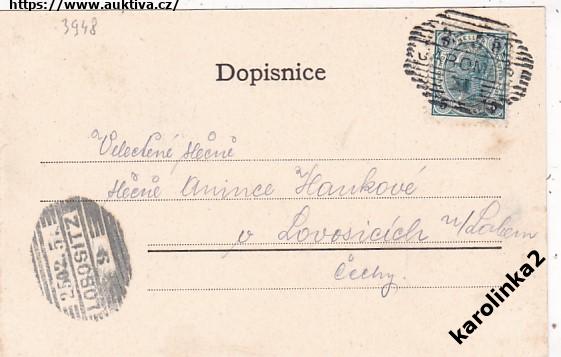 https://www.auktiva.cz/
3948
Dopisnice
Velectěné slečně
slečně Anince Hankové
v Lovosicích n/Labem
Čechy.
LOBOSITZ
karolinka2